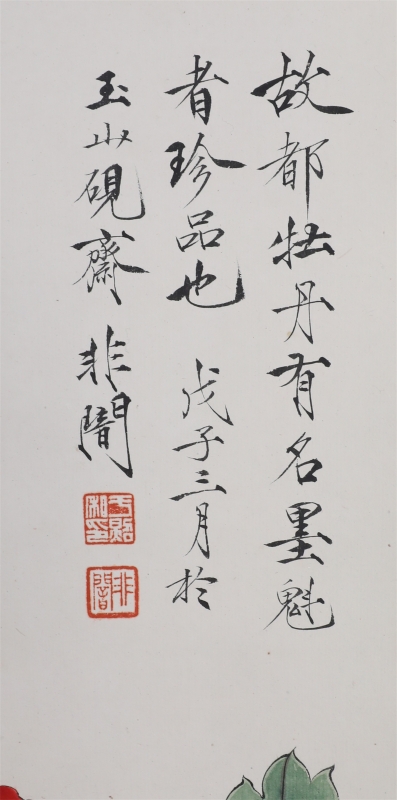 故都牡丹有名墨魁
者珍品也 戊子三月於
玉山硯齋 非闇
于照私印
非闇